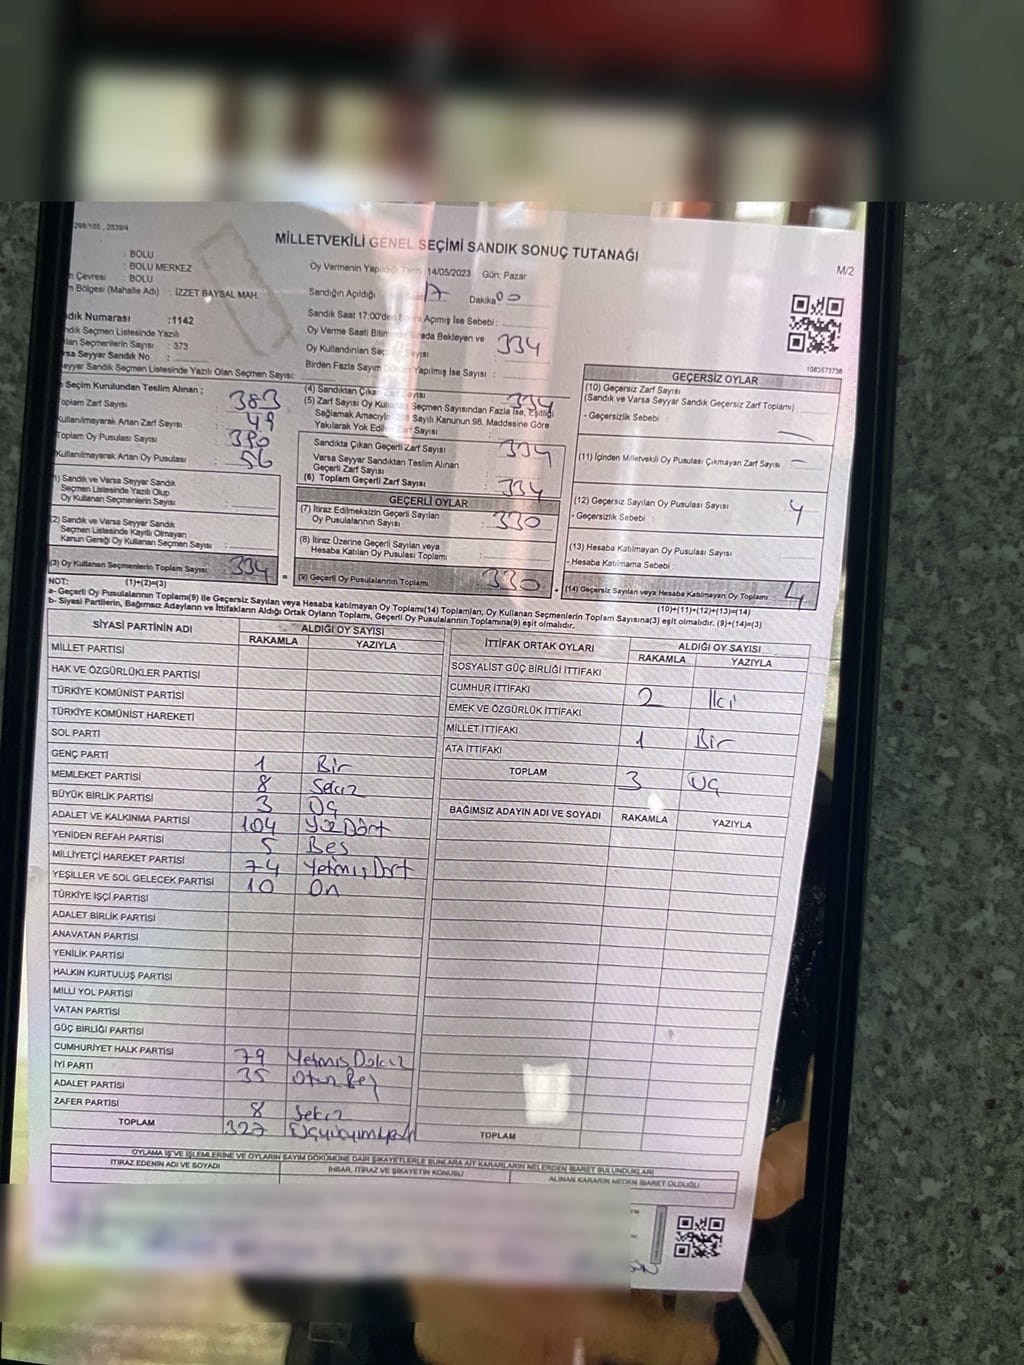 298/105 , 2839/4
MİLLETVEKİLİ GENEL SEÇİMİ SANDIK SONUÇ TUTANAĞI
M/2
: BOLU
: BOLU MERKEZ
Çevresi : BOLU
Bölgesi (Mahalle Adı) : İZZET BAYSAL MAH.
Numarası :1142
Seçmen Listesinde Yazılı
Seçmenlerin Sayısı : 373
Seyyar Sandık No :
Seyyar Sandık Seçmen Listesinde Yazılı Olan Seçmen Sayısı:
Oy Vermenin Yapıldığı Tarih 14/05/2023 Gün: Pazar
Sandığın Açıldığı 17 Dakika 00
Sandık Saat 17:00'den Açılmış İse Sebebi :
Oy Verme Saati Bitiminde Sırada Bekleyen ve
Oy Kullandırılan Seçmen Sayısı : 334
Birden Fazla Sayım Döküm Yapılmış İse Sayısı :
1083573736
Seçim Kurulundan Teslim Alınan ;
Toplam Zarf Sayısı : 383
Kullanılmayarak Artan Zarf Sayısı : 49
Toplam Oy Pusulası Sayısı : 390
Kullanılmayarak Artan Oy Pusulası : 56
(1) Sandık ve Varsa Seyyar Sandık
Seçmen Listesinde Yazılı Olup
Oy Kullanan Seçmenlerin Sayısı :
(2) Sandık ve Varsa Seyyar Sandık
Seçmen Listesinde Kayıtlı Olmayan
Kanun Gereği Oy Kullanan Seçmen Sayısı :
(3) Oy Kullanan Seçmenlerin Toplam Sayısı: 334
(4) Sandıktan Çıkan Zarf Sayısı : 334
(5) Zarf Sayısı Oy Kullanan Seçmen Sayısından Fazla İse, Eşitliği
Sağlamak Amacıyla Sayılı Kanunun 98. Maddesine Göre
Yakılarak Yok Edilen Zarf Sayısı
Sandıkta Çıkan Geçerli Zarf Sayısı : 334
Varsa Seyyar Sandıktan Teslim Alınan
Geçerli Zarf Sayısı
(6) Toplam Geçerli Zarf Sayısı : 334
GEÇERLİ OYLAR
(7) İtiraz Edilmeksizin Geçerli Sayılan
Oy Pusulalarının Sayısı : 330
(8) İtiraz Üzerine Geçerli Sayılan veya
Hesaba Katılan Oy Pusulası Toplamı :
= (9) Geçerli Oy Pusulalarının Toplamı : 330
GEÇERSİZ OYLAR
(10) Geçersiz Zarf Sayısı
(Sandık ve Varsa Seyyar Sandık Geçersiz Zarf Toplamı)
- Geçersizlik Sebebi :
(11) İçinden Milletvekili Oy Pusulası Çıkmayan Zarf Sayısı -
(12) Geçersiz Sayılan Oy Pusulası Sayısı : 4
- Geçersizlik Sebebi :
(13) Hesaba Katılmayan Oy Pusulası Sayısı
- Hesaba Katılmama Sebebi :
+ (14) Geçersiz Sayılan veya Hesaba Katılmayan Oy Toplamı : 4
NOT: (1)+(2)=(3) (10)+(11)+(12)+(13)=(14)
a- Geçerli Oy Pusulalarının Toplamı(9) ile Geçersiz Sayılan veya Hesaba katılmayan Oy Toplamı(14) Toplamları, Oy Kullanan Seçmenlerin Toplam Sayısına(3) eşit olmalıdır. (9)+(14)=(3)
b- Siyasi Partilerin, Bağımsız Adayların ve İttifakların Aldığı Ortak Oyların Toplamı, Geçerli Oy Pusulalarının Toplamına(9) eşit olmalıdır.
SİYASİ PARTİNİN ADI ALDIĞI OY SAYISI
RAKAMLA YAZIYLA
MİLLET PARTİSİ
HAK VE ÖZGÜRLÜKLER PARTİSİ
TÜRKİYE KOMÜNİST PARTİSİ
TÜRKİYE KOMÜNİST HAREKETİ
SOL PARTİ
GENÇ PARTİ 1 Bir
MEMLEKET PARTİSİ 8 Sekiz
BÜYÜK BİRLİK PARTİSİ 3 Üç
ADALET VE KALKINMA PARTİSİ 104 Yüz Dört
YENİDEN REFAH PARTİSİ 5 Beş
MİLLİYETÇİ HAREKET PARTİSİ 74 Yetmiş Dört
YEŞİLLER VE SOL GELECEK PARTİSİ 10 On
TÜRKİYE İŞÇİ PARTİSİ
ADALET BİRLİK PARTİSİ
ANAVATAN PARTİSİ
YENİLİK PARTİSİ
HALKIN KURTULUŞ PARTİSİ
MİLLİ YOL PARTİSİ
VATAN PARTİSİ
GÜÇ BİRLİĞİ PARTİSİ
CUMHURİYET HALK PARTİSİ 79 Yetmiş Dokuz
İYİ PARTİ 35 Otuz Beş
ADALET PARTİSİ
ZAFER PARTİSİ 8 Sekiz
TOPLAM 327
İTTİFAK ORTAK OYLARI ALDIĞI OY SAYISI
RAKAMLA YAZIYLA
SOSYALİST GÜÇ BİRLİĞİ İTTİFAKI
CUMHUR İTTİFAKI 2 İki
EMEK VE ÖZGÜRLÜK İTTİFAKI
MİLLET İTTİFAKI 1 Bir
ATA İTTİFAKI
TOPLAM 3 Üç
BAĞIMSIZ ADAYIN ADI VE SOYADI RAKAMLA YAZIYLA
TOPLAM
OYLAMA İŞ VE İŞLEMLERİNE VE OYLARIN SAYIM DÖKÜMÜNE DAİR ŞİKAYETLERLE BUNLARA AİT KARARLARIN NELERDEN İBARET BULUNDUKLARI
İTİRAZ EDENİN ADI VE SOYADI İHBAR, İTİRAZ VE ŞİKAYETİN KONUSU ALINAN KARARIN NEDEN İBARET OLDUĞU